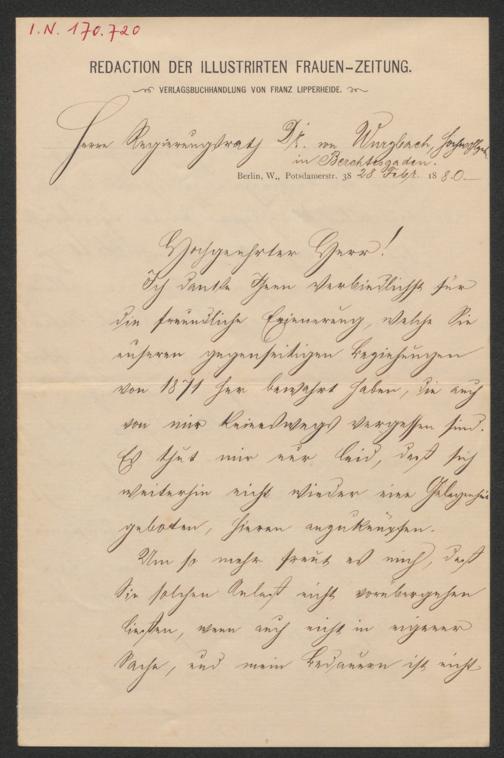 I.N. 170.720
REDACTION DER ILLUSTRIRTEN FRAUEN-ZEITUNG.
VERLAGSBUCHHANDLUNG VON FRANZ LIPPERHEIDE.
Herrn Regierungsrath Dr. von Wurzbach, Hochwohlgeb.
in Berchtesgaden.
Berlin, W., Potsdamerstr. 38 28 Febr. 1880.
Hochgeehrter Herr!
Ich danke Ihnen verbindlichst für
die freundliche Erinnerung, welche Sie
unseren gegenseitigen Beziehungen
von 1871 her bewahrt haben, die auch
von mir keineswegs vergessen sind.
Es thut mir nur leid, daß sich
weiterhin nicht wieder eine Gelegenheit
geboten, hieran anzuknüpfen.
Um so mehr freut es mich, daß
Sie solchen Anlaß nicht vorübergehen
ließen, wenn auch nicht in eigener
Sache, und mein Bedauern ist nicht